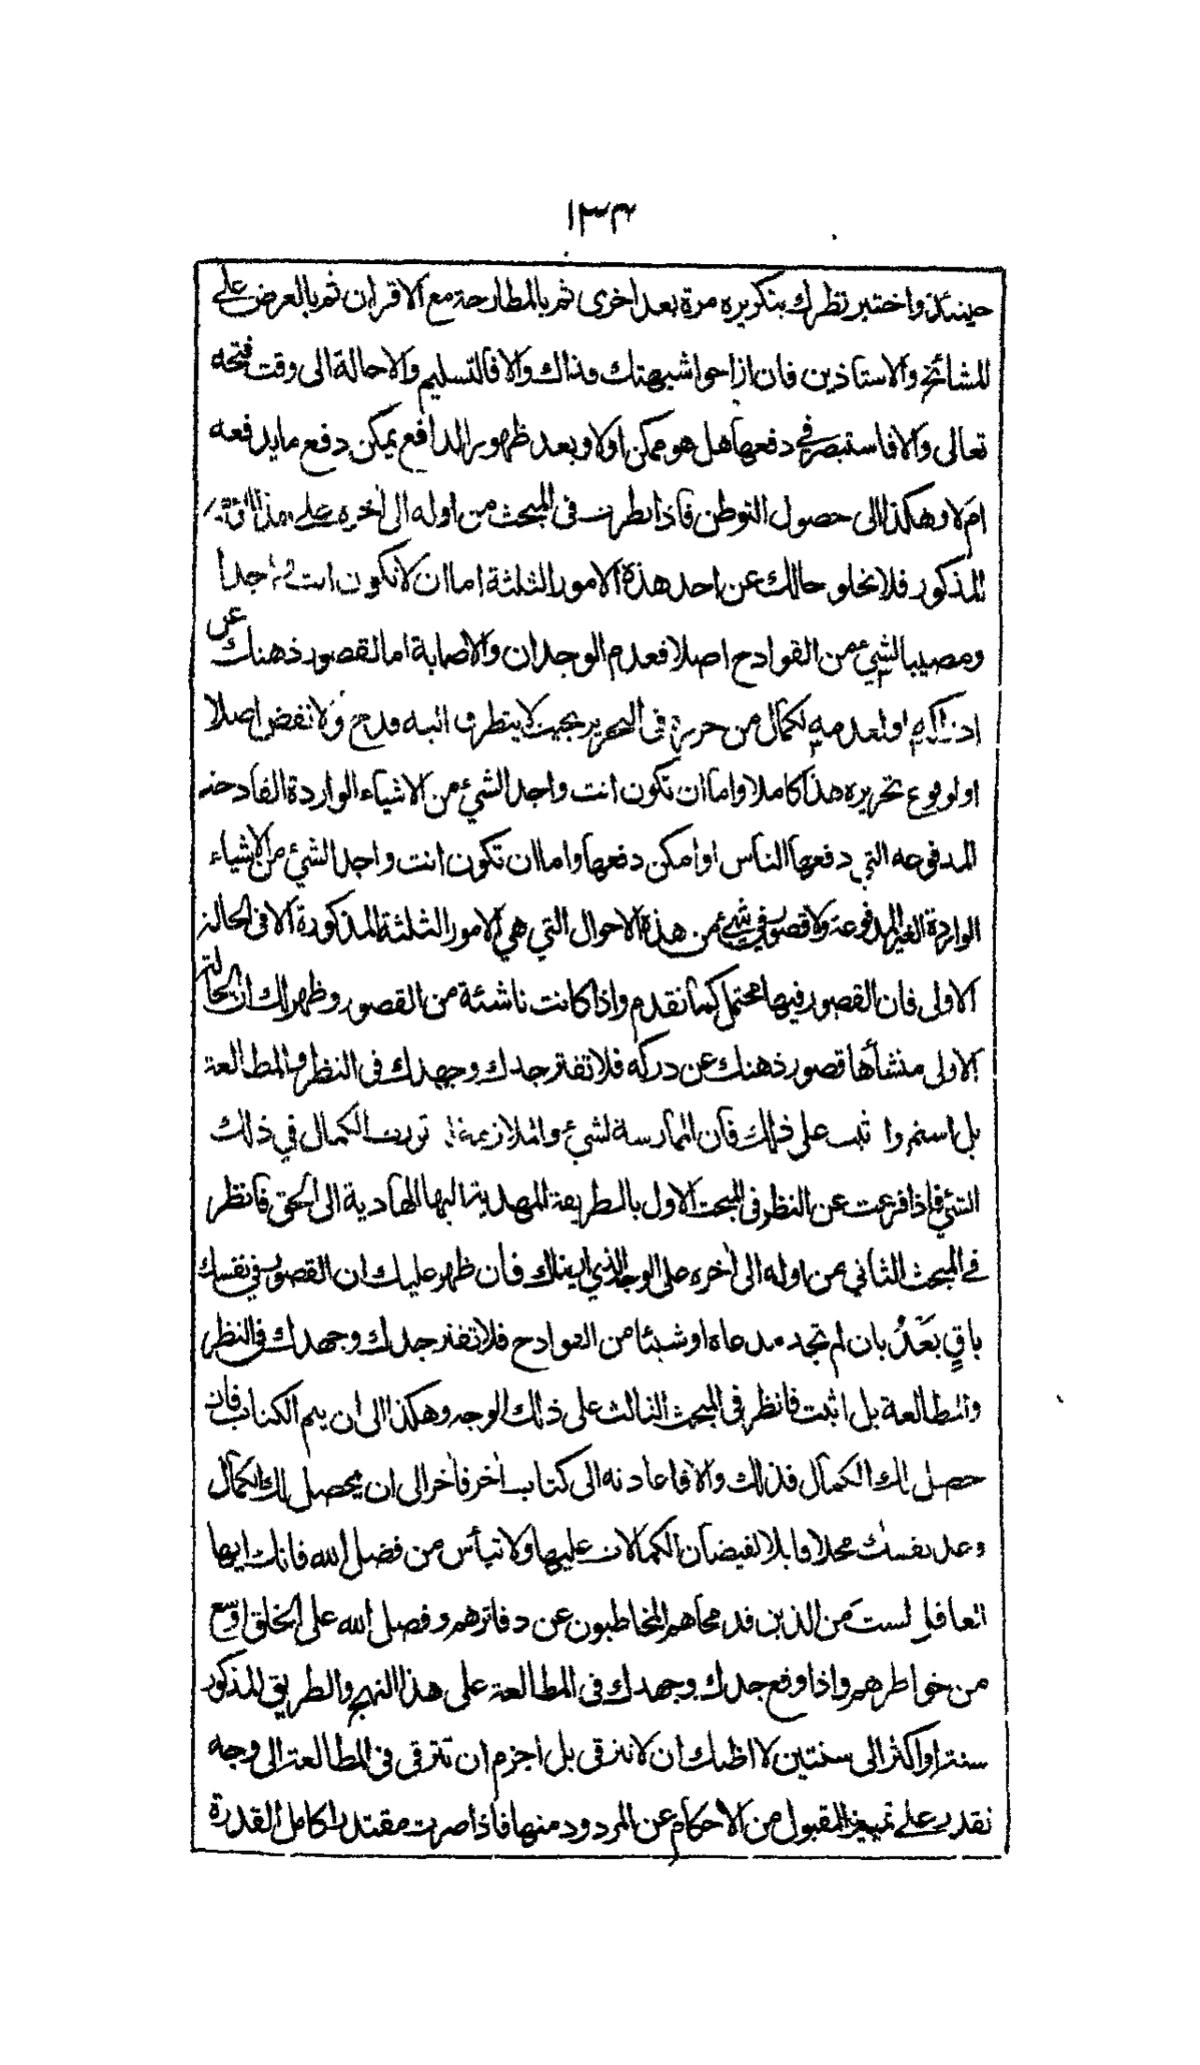 ١٣٤
حينئذ واختبر نظرك بتكريره مرة بعد اخرى ثم بالمطارحة مع الاقران ثم بالعرض على
المشائخ والاستاذين فان ازاحوا شبهتك فذاك والا فالتسليم والاحالة الى وقت فتحه
تعالى والا فاستبصر في دفعها هل هو ممكن اولا وبعد ظهور الدافع يمكن دفع ما يدفعه
ام لا وهكذا الى حصول التوطن فاذا نظرت فى المبحث من اوله الى اخره على هذا
المذكور فلا يخلو حالك عن احد هذه الامور الثلثة اما ان لا تكون انت واجدا
ومصيبا لشيء من القوادح اصلا فعدم الوجدان والاصابة اما لقصور ذهنك عن
ادراكه او لعدمه لكمال من حرره فى التحرير بحيث لا يتطرق اليه قدح ولا نقض اصلا
او لوقوع تحريره هذا كاملا واما ان تكون انت واجدا لشيء من الاشياء الواردة القادحة
المدفوعه التي دفعها الناس او امكن دفعها واما ان تكون انت واجدا لشيء من الاشياء
الواردة الغير المدفوعة ولا قصور في شيء من هذه الاحوال التي هي الامور الثلثة المذكورة الا فى الحالة
الاولى فان القصور فيها محتمل كما تقدم واذا كانت ناشئة من القصور وظهر لك ان الحالة
الاولى منشأها قصور ذهنك عن دركه فلا تفتر جدك وجهدك فى النظر والمطالعة
بل استمر واثبت على ذلك فان الممارسة لشيء والملازمة تورث الكمال في ذلك
الشيء فاذا فرغت عن النظر فى المبحث الاول بالطريقة المهدية اليها الهادية الى الحق فانظر
في المبحث الثاني من اوله الى اخره على الوجه الذي اريناك فان ظهر عليك ان القصور في نفسك
باقٍ بَعْدُ بان لم تجد مدعاه او شيئا من القوادح فلا تفتر جدك وجهدك فى النظر
والمطالعة بل اثبت فانظر فى المبحث الثالث على ذلك الوجه وهكذا الى ان يتم الكتاب فان
حصل لك الكمال فذلك والا فاعادته الى كتاب اخر فاخر الى ان يحصل لك الكمال
وعد نفسك محلا قابلا لفيضان الكمالات عليها ولا تيأس من فضل الله فانك ايها
العاقل لستَ من الذين قد محاهم المخاطبون عن دفاترهم وفضل الله على الخلق اوسع
من خواطرهم واذا وقع جدك وجهدك فى المطالعة على هذا النهج والطريق المذكور
سنة او اكثر الى سنتين لا اظنك ان لا تترقى بل اجزم ان تترقى فى المطالعة الى وجه
تقدر على تمييز المقبول من الاحكام عن المردود منها فاذا صرت مقتدرا كامل القدرة